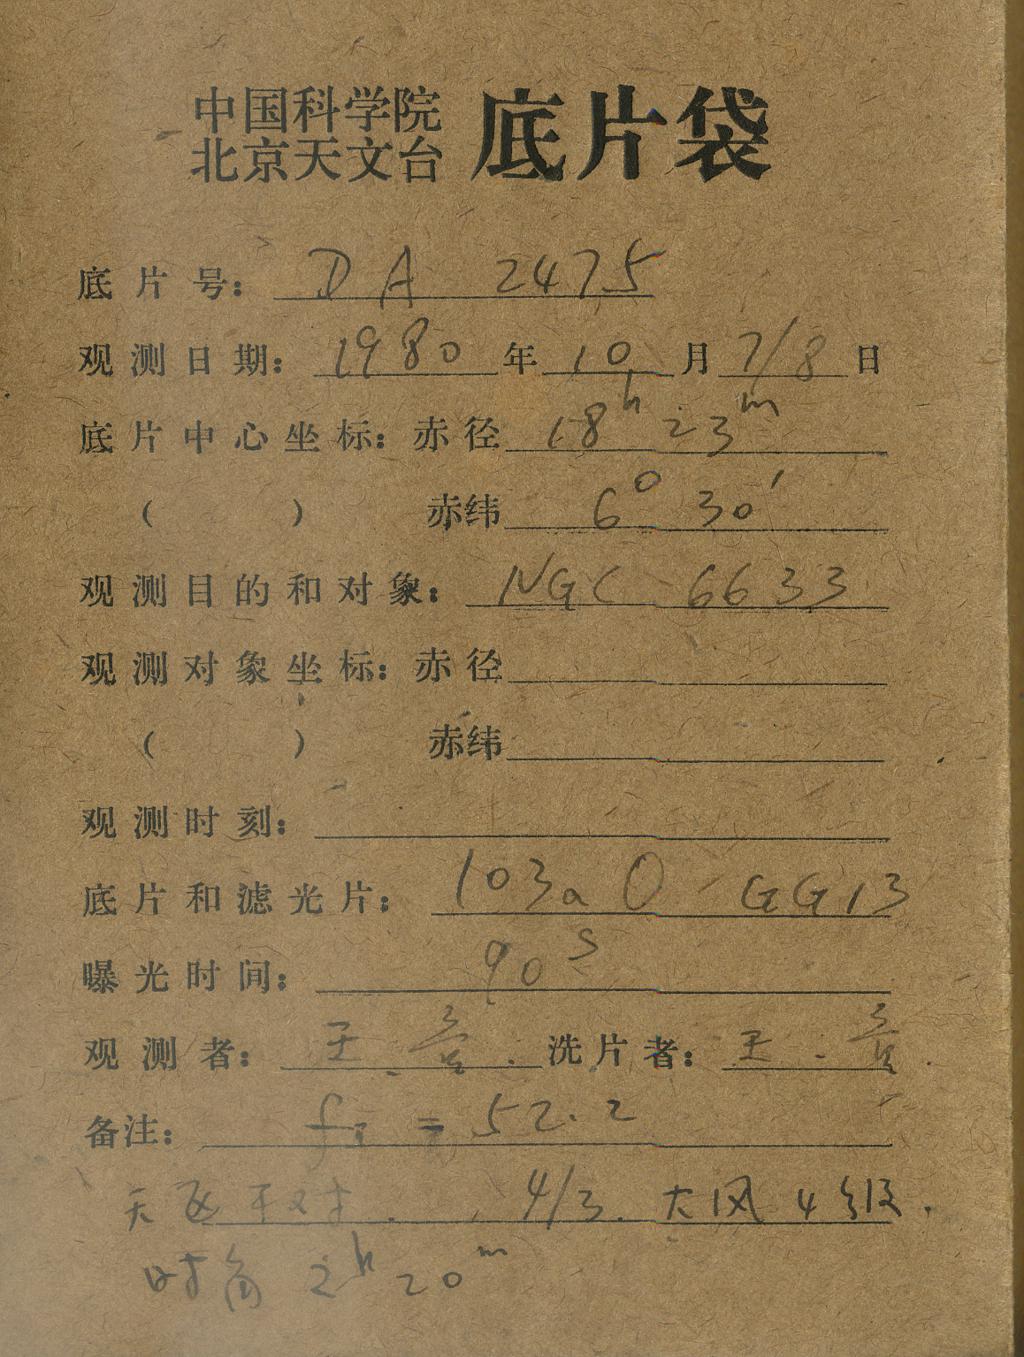 中国科学院
北京天文台 底片袋
底片号: DA 2475
观测日期: 1980 年 10 月 7/8 日
底片中心坐标: 赤径 18h 23m
( ) 赤纬 6° 30′
观测目的和对象: NGC 6633
观测对象坐标: 赤径
( ) 赤纬
观测时刻:
底片和滤光片: 103a O GG13
曝光时间: 90s
观测者: 王 . 洗片者: 王 .
备注: = 52.2
天区不对. 4/3. 大风4级.
时角 2h 20m